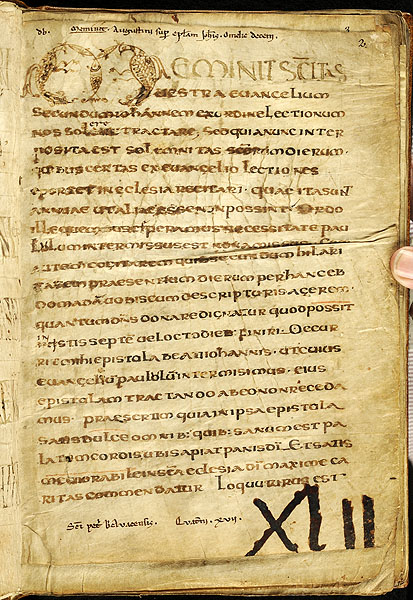 Augustini sup epłam Johis Omelie decem
2
MEMINIT SCITAS
UESTRA EUANGELIUM
SECUNDUM IOHANNEM EX ORDINE LECTIONUM
NOS SOLERE TRACTARE, SED QUIA NUNC INTER
POSITA EST SOLEMNITAS SCORUM DIERUM
QUIBUS CERTAS EX EUANGELIO LECTIONES
OPORTET IN ECLESIA RECITARI. QUAE ITA SUNT
ANNUAE UT ALIAE ESSE NON POSSINT. ORDO
ILLE QUEM SUSCEPERAMUS NECESSITATE PAU
LULUM INTERMISSUS EST NON AMISSUS
AUTEM COGITAREM QUID SECUNDUM HILARI
TATEM PRAESENTIUM DIERUM PER HANC EB
DOMADA UOBISCUM DE SCRIPTURIS AGEREM.
QUANTUM DNS DONARE DIGNATUR QUOD POSSIT
IN ISTIS SEPTE UEL OCTO DIEB: FINIRI. OCCUR
RIT MIHI EPISTULA BEATI IOHANNIS. UT CUIUS
EUANGELIU PAULULU INTERMISIMUS. EIUS
EPISTOLAM TRACTANDO AB EO NON RECEDA
MUS. PRAESERTIM QUIA IN IPSA EPISTULA
SATIS DULCE OMNIB: QUIB: SANUM EST PA
LATUM CORDIS UBI SAPIAT PANIS DI. ET SATIS
MEMORABILE IN SCA ECLESIA DI MAXIME CA
RITAS COMMENDATUR LOQUUTURUS EST
Sci pet Beluacensis. Quatni. xvii.
XLII